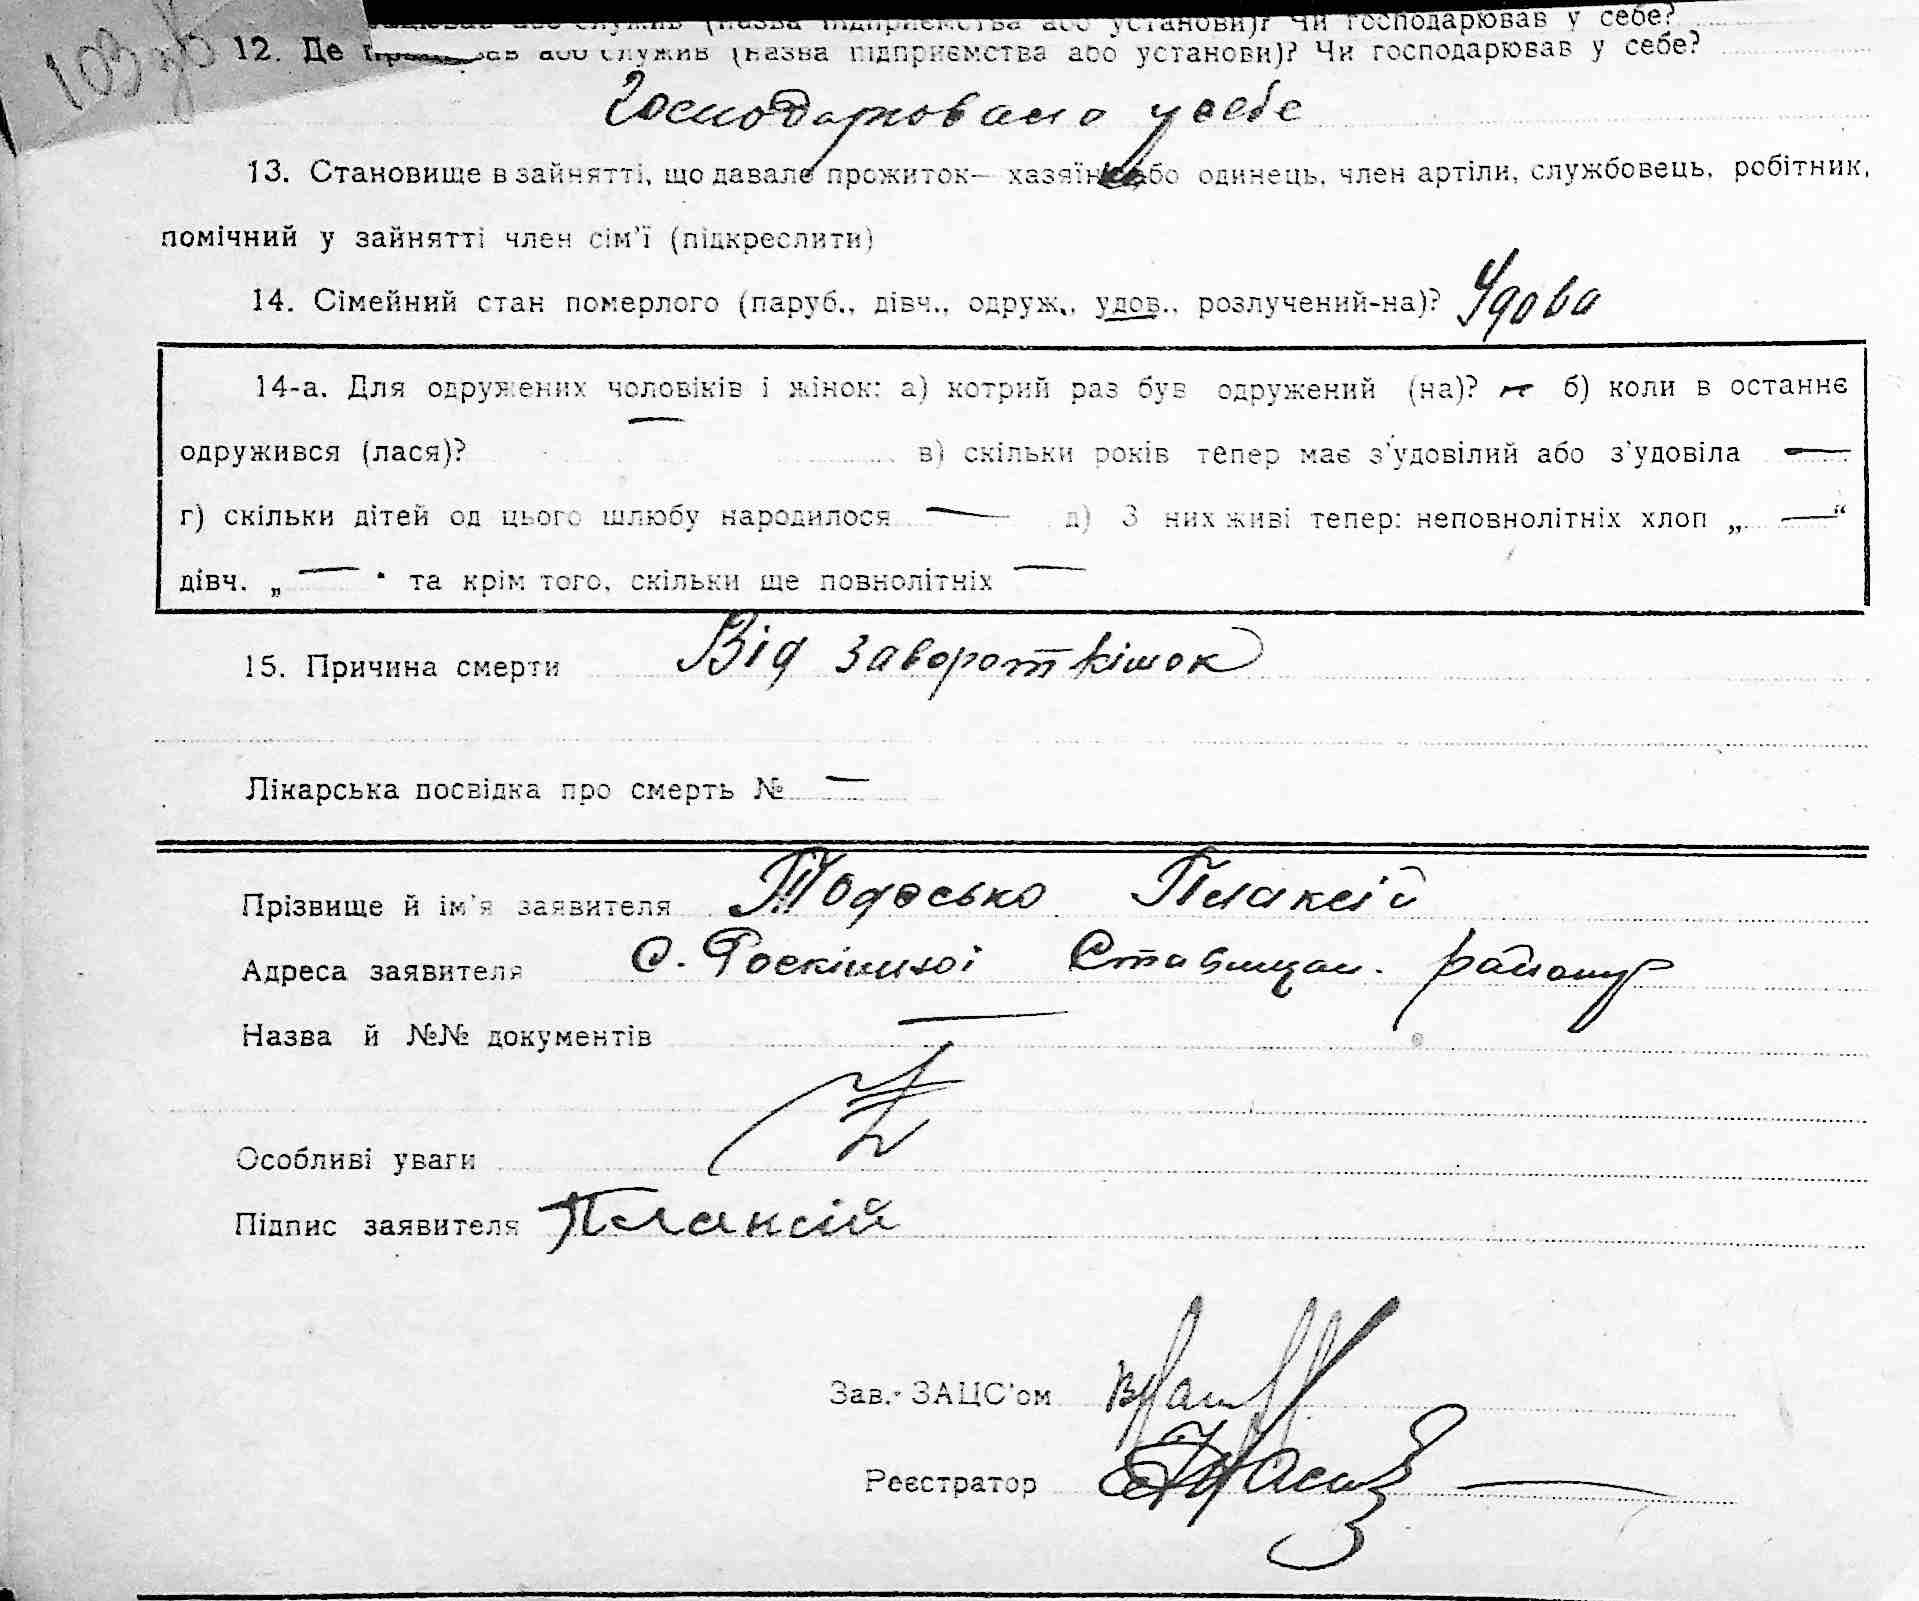 103 зв
або служив (назва підприємства або установи)? Чи господарював у себе?
12. Де працював або служив (назва підприємства або установи)? Чи господарював у себе?
Господарювала у себе
13. Становище в зайнятті, що давало прожиток— хазяїн або одинець, член артіли, службовець, робітник,
помічний у зайнятті член сім'ї (підкреслити)
14. Сімейний стан померлого (паруб., дівч., одруж., удов., розлучений-на)? Удова
14-а. Для одружених чоловіків і жінок: а) котрий раз був одружений (на)? — б) коли в останнє
одружився (лася)? — в) скільки років тепер має з'удовілий або з'удовіла —
г) скільки дітей од цього шлюбу народилося — д) З них живі тепер: неповнолітніх хлоп „ — “
дівч. „ — " та крім того, скільки ще повнолітніх —
15. Причина смерти Від заворот кішок
Лікарська посвідка про смерть № —
Прізвище й ім'я заявителя Тодосько Плаксій
Адреса заявителя С. Роскішної Ставищан. району
Назва й №№ документів —
Особливі уваги
Підпис заявителя Плаксій
Зав.- ЗАЦС'ом
Реєстратор